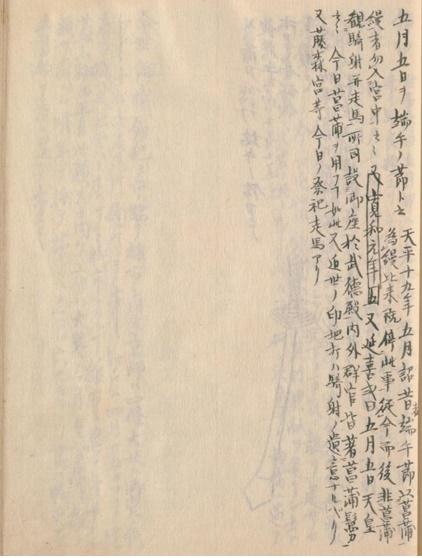 五月五日ヲ端午ノ節ト云
天平十九年五月詔昔端午節以菖蒲
為縵比来既停此事従今而後非菖蒲
縵者勿入宮中ト云々又寛和元年五又延喜式曰五月五日天皇
観騎射并走馬所司設御座於武徳殿内外群官皆著菖蒲鬘
云々今日菖蒲ヲ用フル如此又近世ノ印地打ハ騎射ノ遺意ナルベシ
又藤森宮等今日ノ祭祀走馬アリ